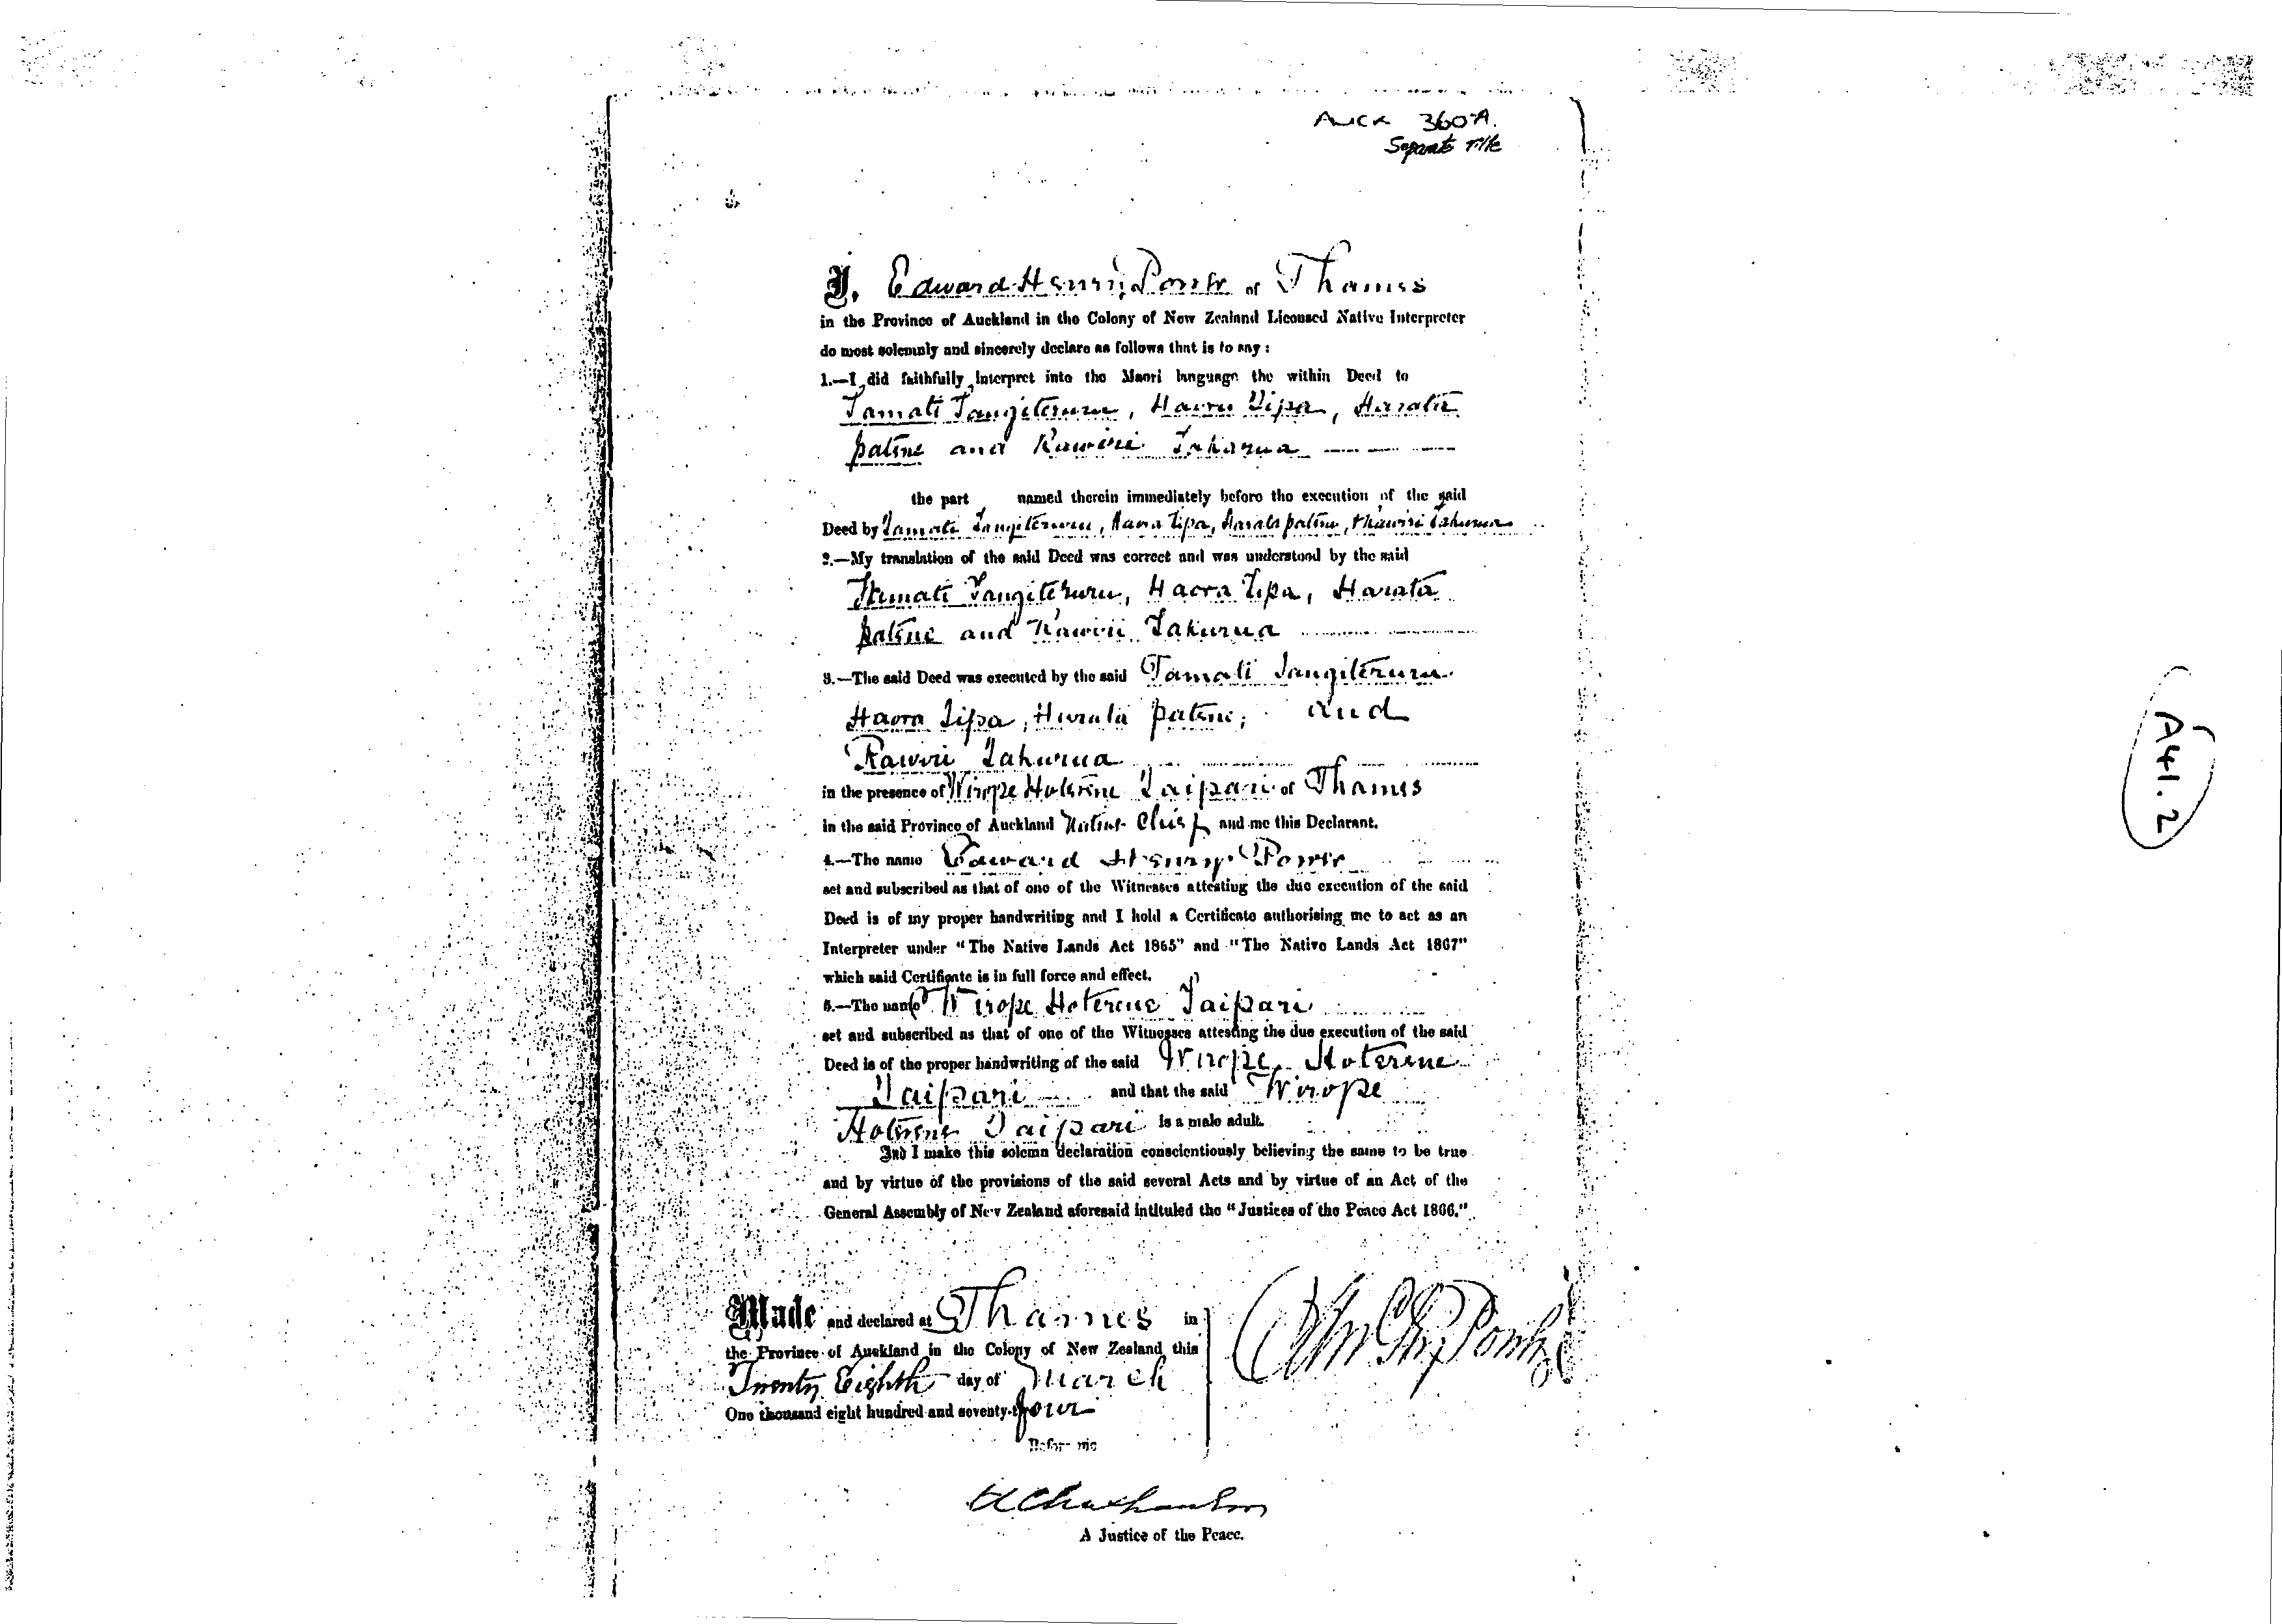 AUCK 360A.
Separate Title
I, Edward Henry Power of Thames
in the Province of Auckland in the Colony of New Zealand Licensed Native Interpreter
do most solemnly and sincerely declare as follows that is to say:
1.—I did faithfully interpret into the Maori language the within Deed to
Tamati Tangiteruru, Haora Tipa, Harata
patene and Rawiri Takurua
the part named therein immediately before the execution of the said
Deed by Tamati Tangiteruru, Haora Tipa, Harata patene, Rawiri Takurua
2.—My translation of the said Deed was correct and was understood by the said
Tamati Tangiteruru, Haora Tipa, Harata
patene and Rawiri Takurua
3.—The said Deed was executed by the said Tamati Tangiteruru
Haora Tipa, Harata patene, and
Rawiri Takurua
in the presence of Wirope Hoterene Taipari of Thames
in the said Province of Auckland Native Chief and me this Declarant.
4.—The name Edward Henry Power
set and subscribed as that of one of the Witnesses attesting the due execution of the said
Deed is of my proper handwriting and I hold a Certificate authorising me to act as an
Interpreter under "The Native Lands Act 1865" and "The Native Lands Act 1867"
which said Certificate is in full force and effect.
5.—The name Wirope Hoterene Taipari
set and subscribed as that of one of the Witnesses attesting the due execution of the said
Deed is of the proper handwriting of the said Wirope Hoterene
Taipari and that the said Wirope
Hoterene Taipari is a male adult.
And I make this solemn declaration conscientiously believing the same to be true
and by virtue of the provisions of the said several Acts and by virtue of an Act of the
General Assembly of New Zealand aforesaid intituled the "Justices of the Peace Act 1866."
Made and declared at Thames in
the Province of Auckland in the Colony of New Zealand this
Twenty Eighth day of March
One thousand eight hundred and seventy-four
Before me
A Justice of the Peace.
A41.2